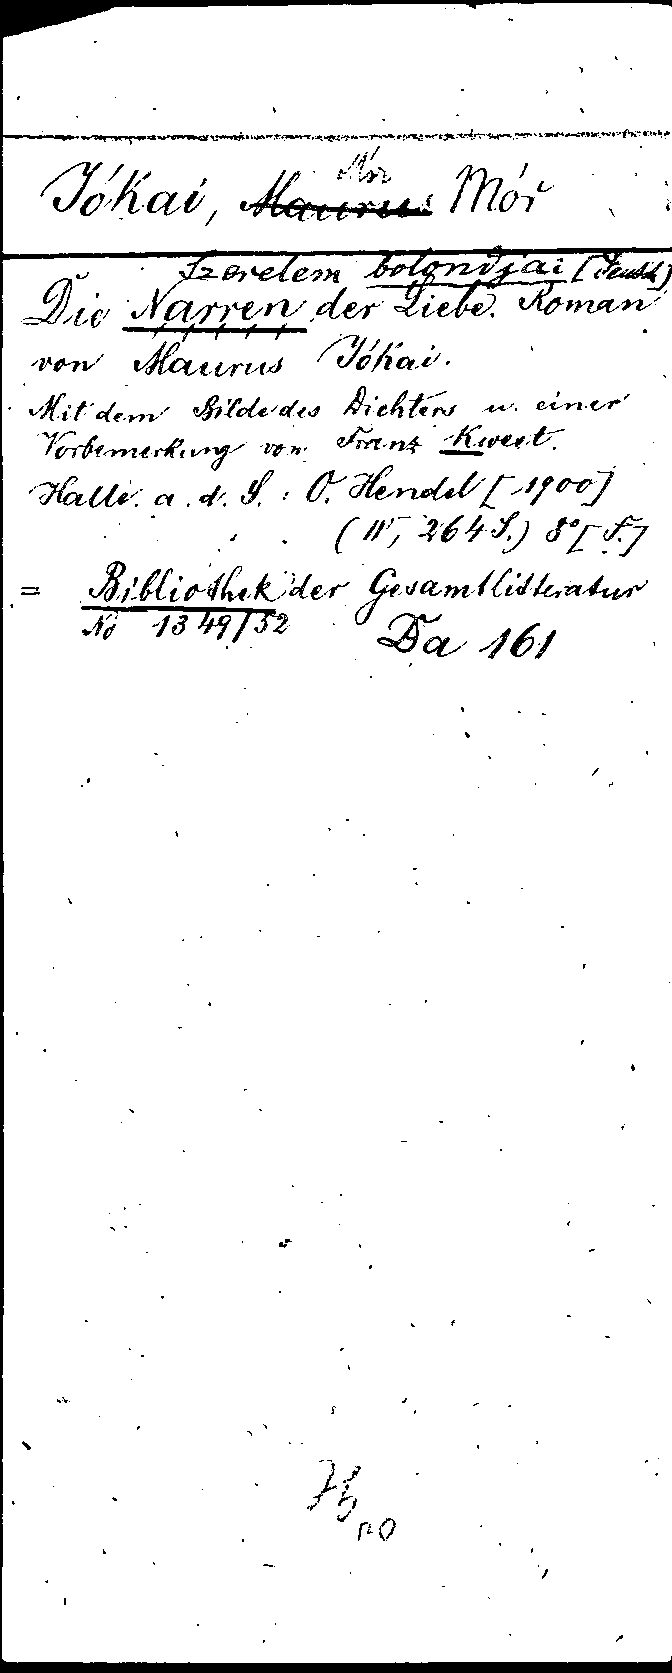 Mór
Jókai, Maurus Mór
Szerelem bolondjai [deutsch]
Die Narren der Liebe. Roman
von Maurus Jókai.
Mit dem Bilde des Dichters u. einer
Vorbemerkung von Franz Kwest.
Halle. a. d. S. : O. Hendel [1900]
(IV, 264 S.) 8° [F.]
= Bibliothek der Gesamtlitteratur
No 1349/52
Da 161